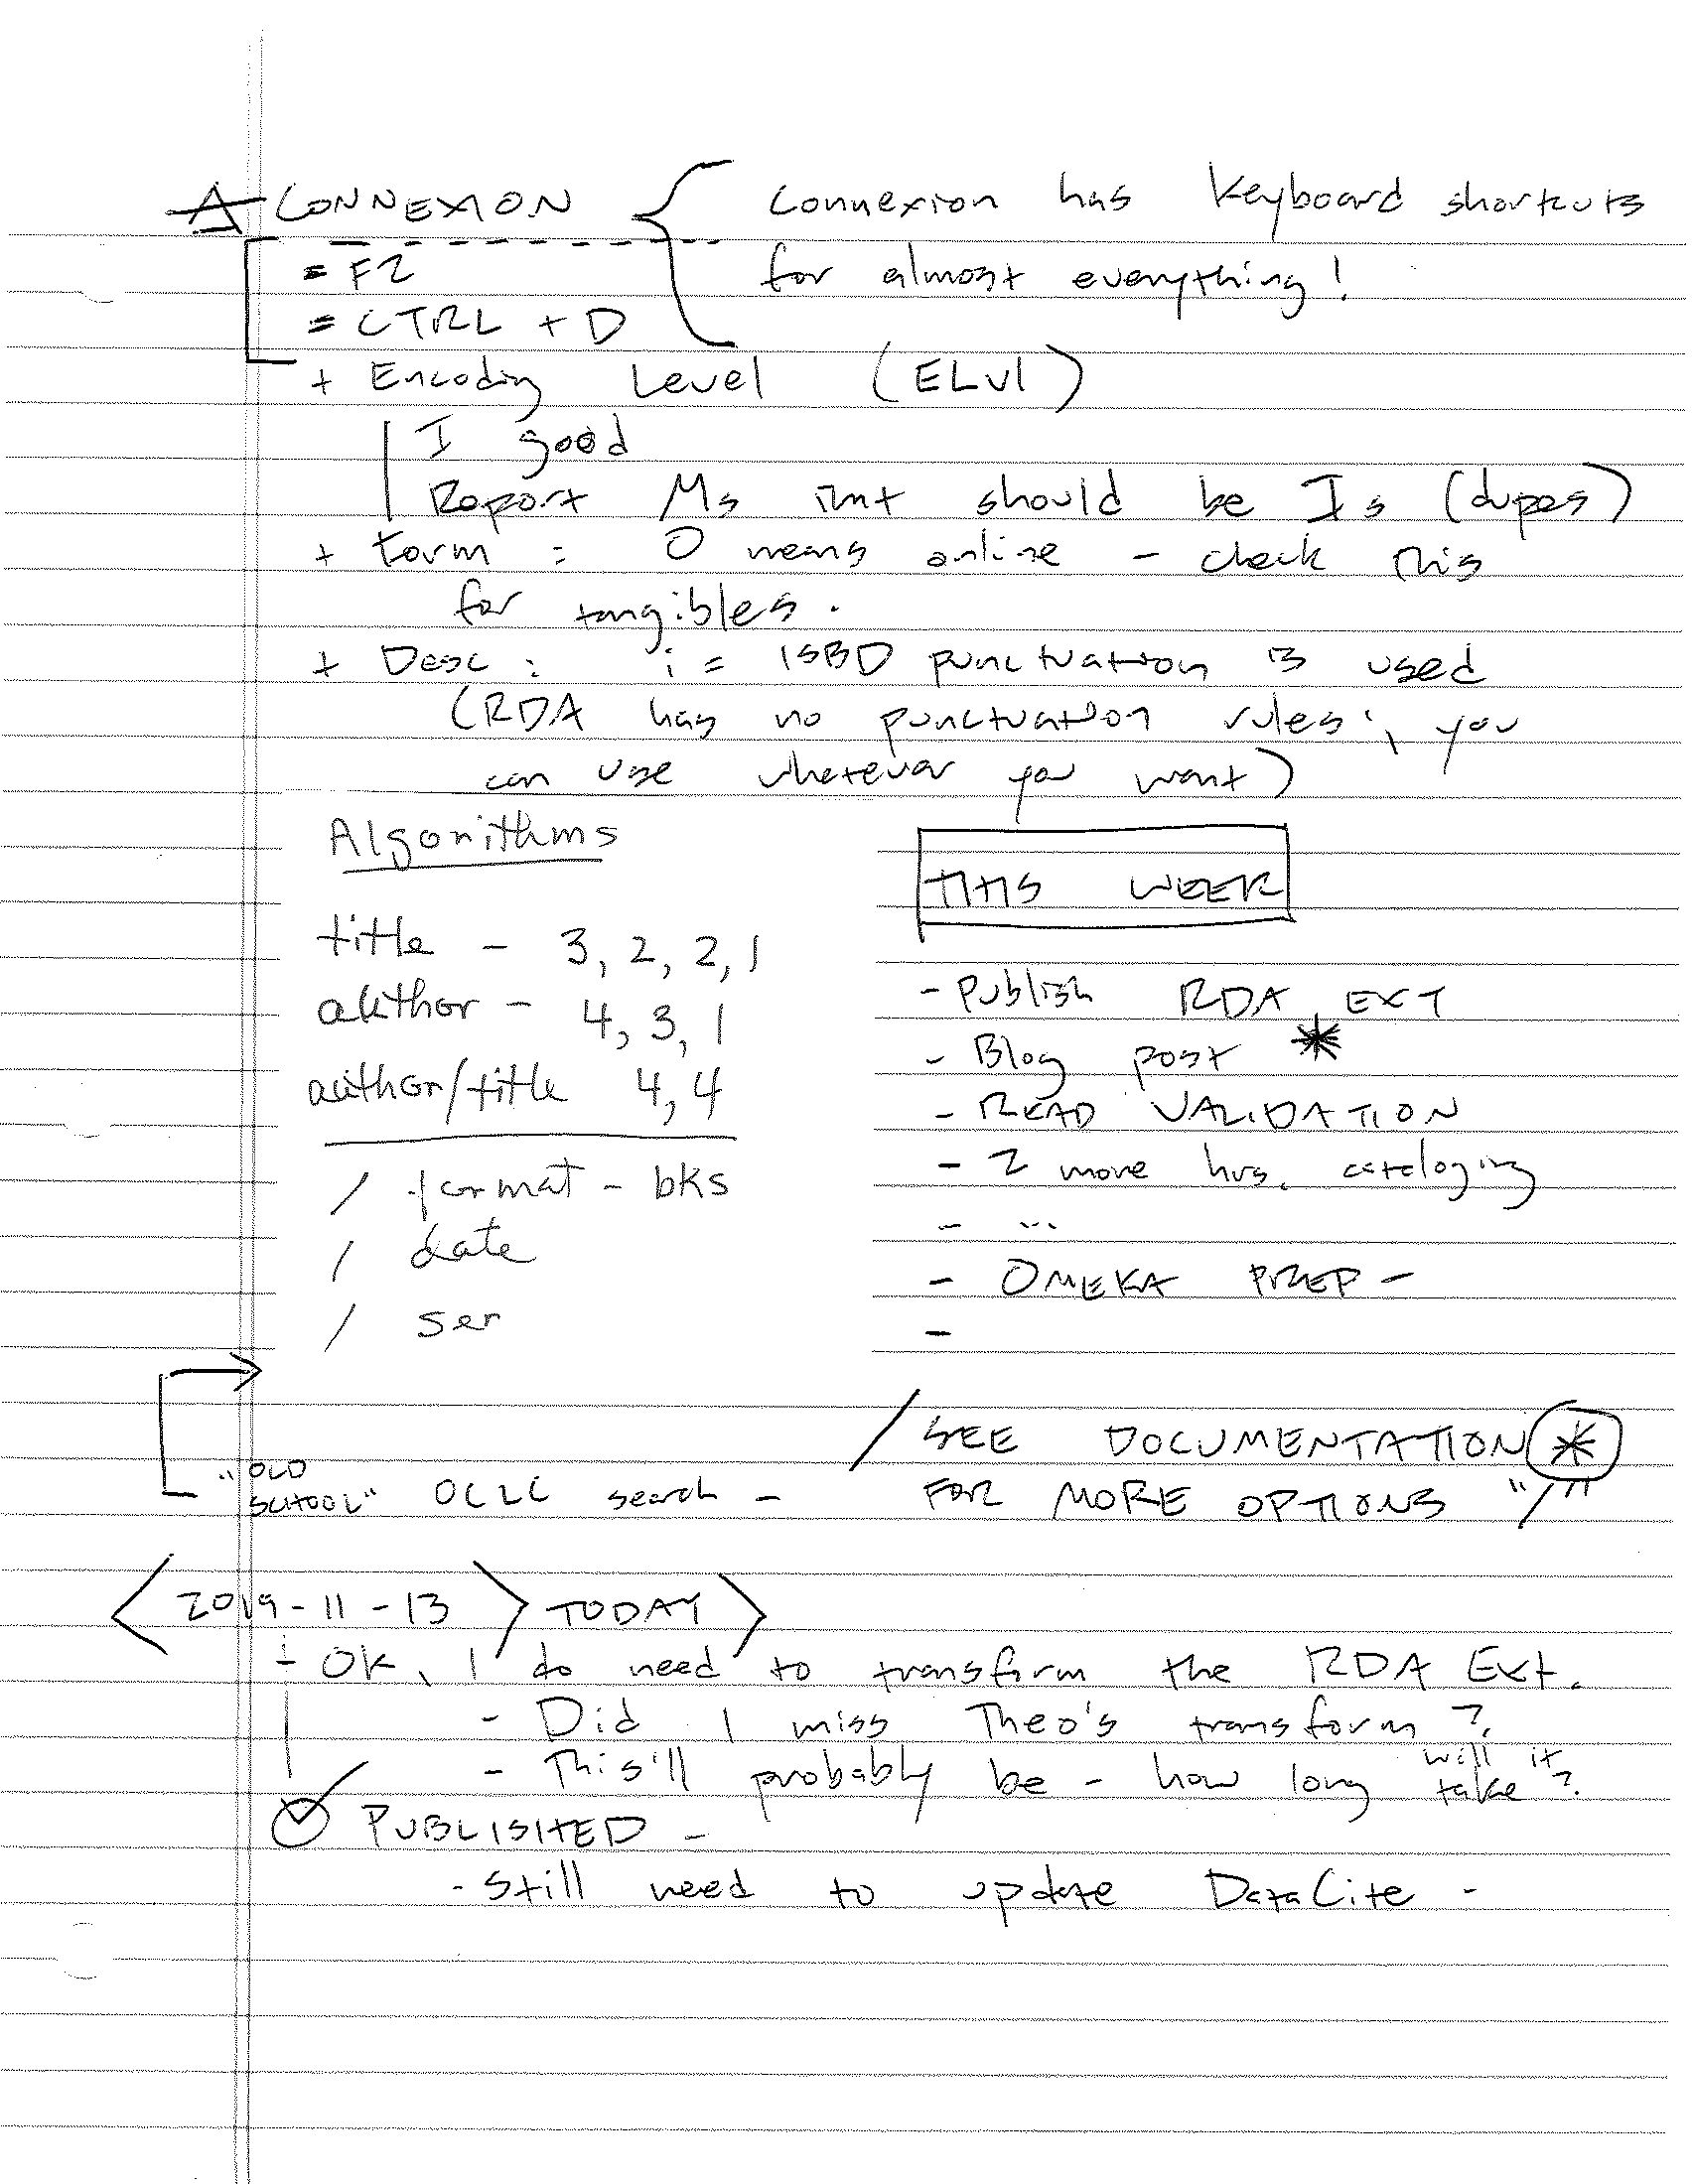 A CONNEXION { Connexion has keyboard shortcuts
for almost everything!
= F2
= CTRL + D
+ Encoding Level (ELvl)
I good
Report Ms that should be Is (dupes)
+ Form : O means online - check this
for tangibles.
+ Desc : i = ISBD punctuation is used
(RDA has no punctuation rules; you
can use whatever you want)
Algorithms
title - 3, 2, 2, 1
author - 4, 3, 1
author/title 4, 4
/ format - bks
/ date
/ ser
THIS WEEK
- Publish RDA EXT
- Blog post *
- READ VALIDATION
- 2 more hrs. cataloging
- ...
- OMEKA PREP -
-
"OLD
SCHOOL" OCLC search -
/ SEE DOCUMENTATION *
FOR MORE OPTIONS "/"
<2019-11-13> TODAY>
- OK, I do need to transform the RDA Ext.
- Did I miss Theo's transform?
- This'll probably be - how long will it take?
✓ PUBLISHED -
- Still need to update DataCite -